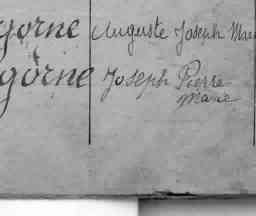 gorne Auguste Joseph Mar
görne Joseph Pierre
Marie